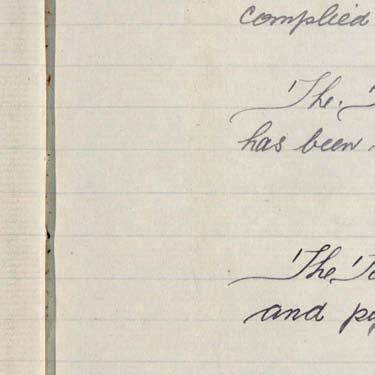 complied
The.
has been
The
and